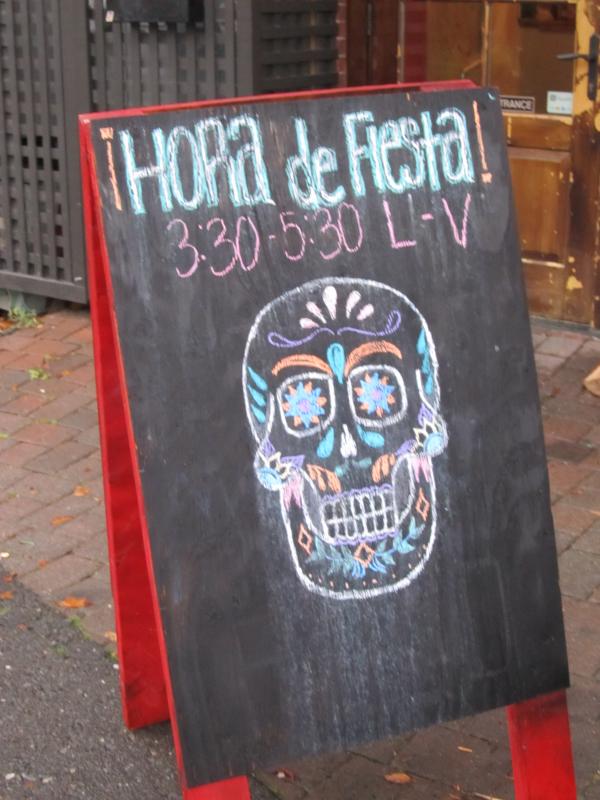 ¡HORA de Fiesta!
3:30-5:30 L-V
TRANCE